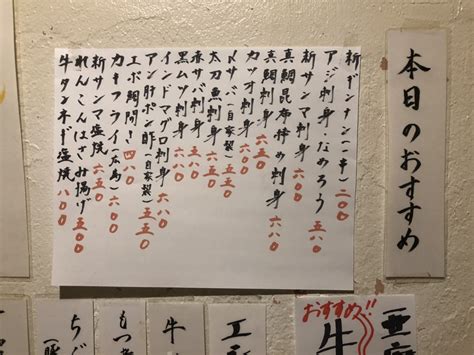 本日のおすすめ
新ギンナン(一串) 二〇〇
アジ刺身・なめろう
新サンマ刺身 五八〇
真鯛昆布〆刺身 六八〇
真鯛刺身 六五〇
カツオ刺身
〆サバ(自家製) 五五〇
太刀魚刺身
赤サバ刺身
黒ムツ刺身 六八〇
インドマグロ刺身 六八〇
アン肝ポン酢(自家製) 五五〇
エボ鯛開き 四八〇
カキフライ(広島) 六〇〇
新サンマ塩焼 六五〇
れんこんはさみ揚げ 五〇〇
牛タンネギ塩焼 八〇〇
おすすめ!!
牛
牛
もつ